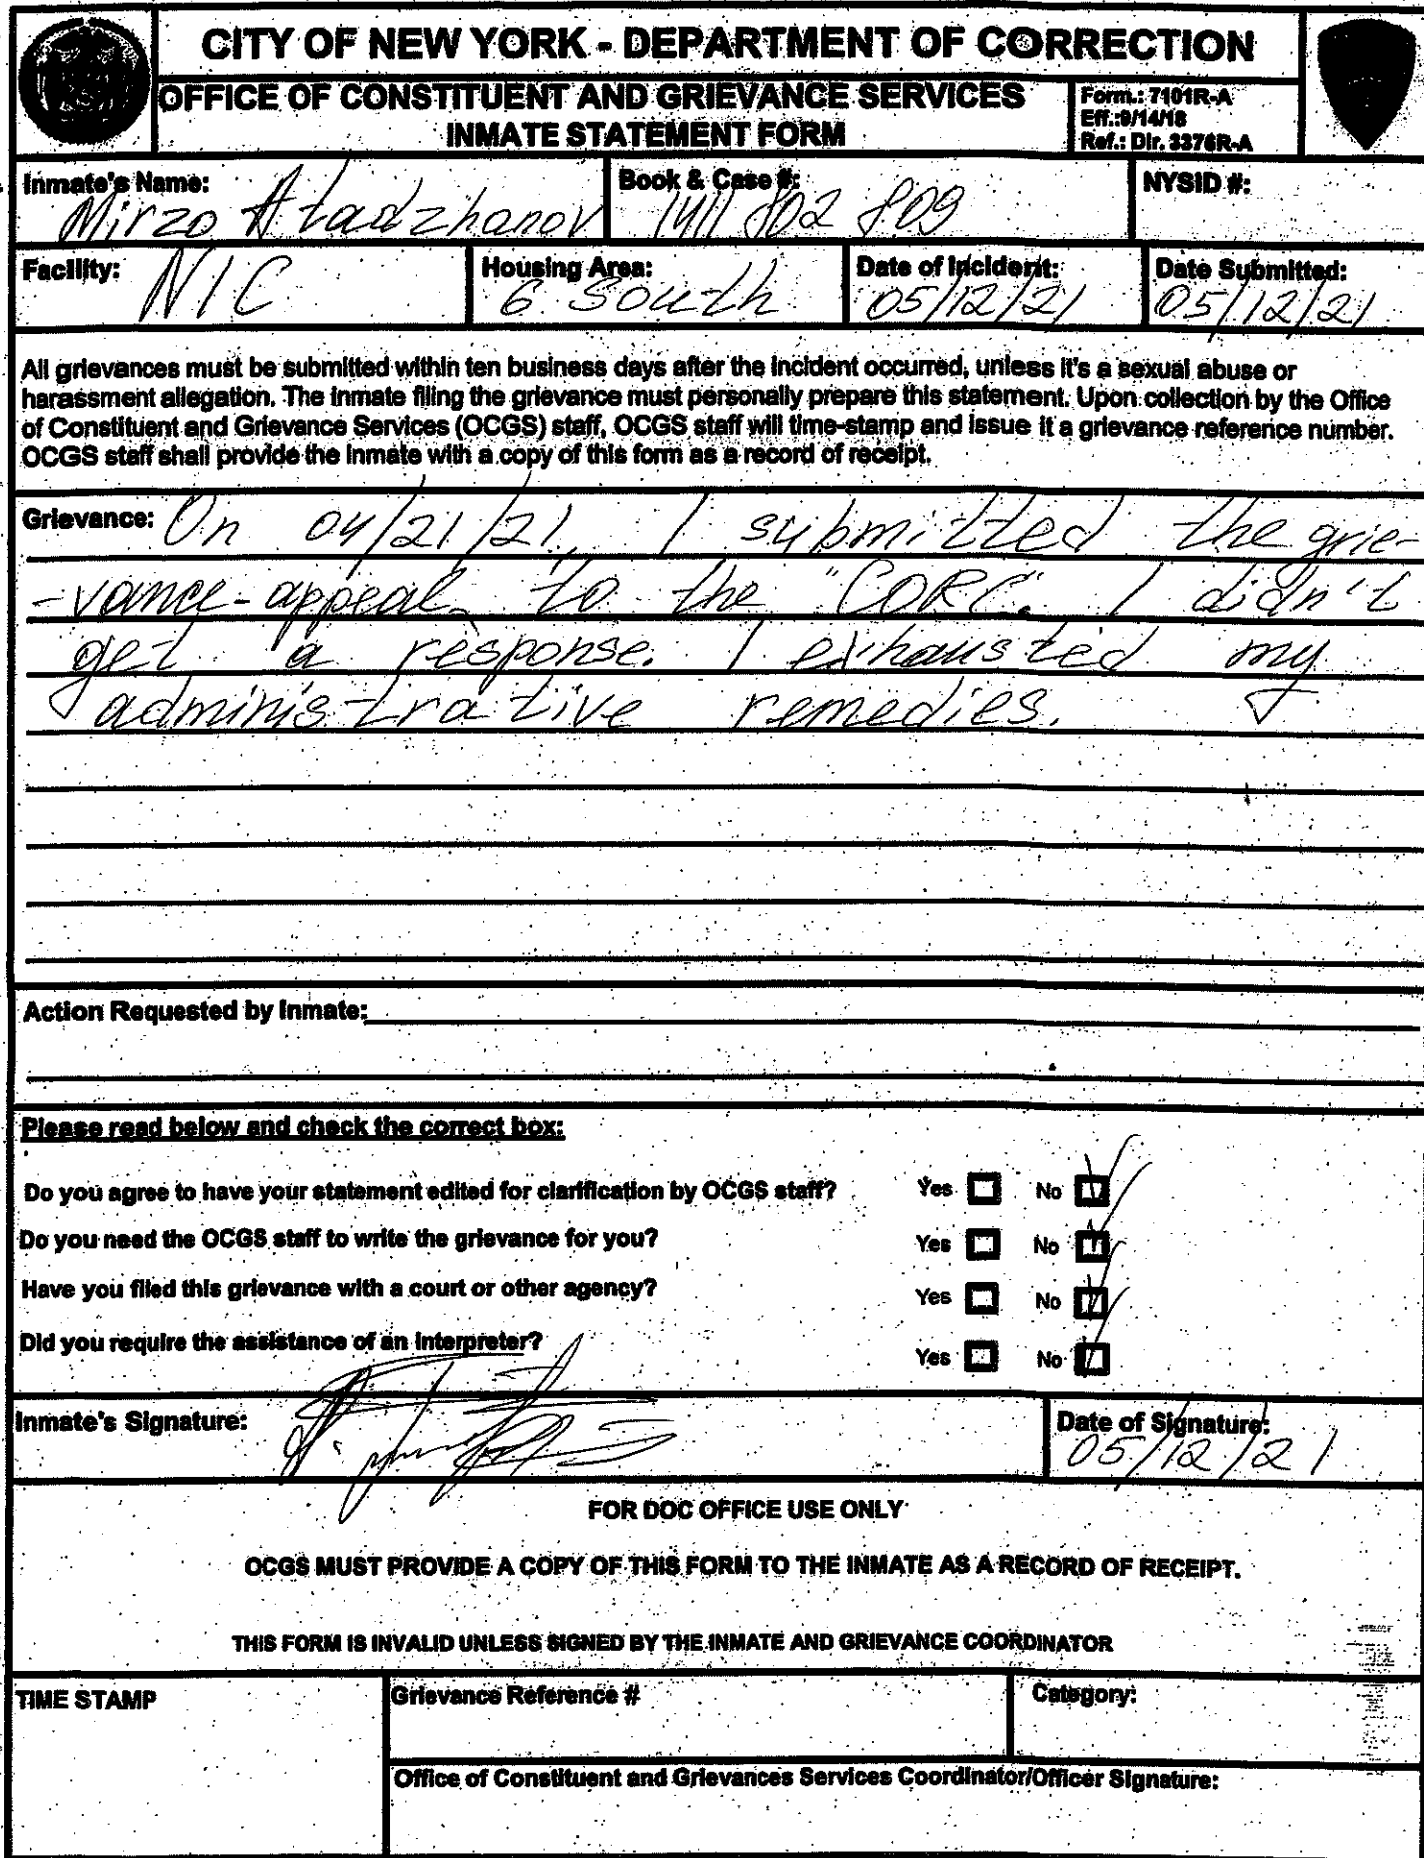 CITY OF NEW YORK - DEPARTMENT OF CORRECTION
OFFICE OF CONSTITUENT AND GRIEVANCE SERVICES
INMATE STATEMENT FORM
Form.: 7101R-A
Eff.:9/14/18
Ref.: Dir. 3376R-A
Inmate's Name: Mirzo Atadzhanov
Book & Case #: 1411 802 809
NYSID #:
Facility: NIC
Housing Area: 6 South
Date of Incident: 05/12/21
Date Submitted: 05/12/21
All grievances must be submitted within ten business days after the incident occurred, unless it's a sexual abuse or
harassment allegation. The inmate filing the grievance must personally prepare this statement. Upon collection by the Office
of Constituent and Grievance Services (OCGS) staff, OCGS staff will time-stamp and issue it a grievance reference number.
OCGS staff shall provide the inmate with a copy of this form as a record of receipt.
Grievance: On 04/21/21, I submitted the grie-
-vance-appeal to the "CORC". I didn't
get a response. I exhausted my
administrative remedies.
Action Requested by Inmate:
Please read below and check the correct box:
Do you agree to have your statement edited for clarification by OCGS staff? Yes No
Do you need the OCGS staff to write the grievance for you? Yes No
Have you filed this grievance with a court or other agency? Yes No
Did you require the assistance of an interpreter? Yes No
Inmate's Signature:
Date of Signature: 05/12/21
FOR DOC OFFICE USE ONLY
OCGS MUST PROVIDE A COPY OF THIS FORM TO THE INMATE AS A RECORD OF RECEIPT.
THIS FORM IS INVALID UNLESS SIGNED BY THE INMATE AND GRIEVANCE COORDINATOR
TIME STAMP
Grievance Reference #
Category:
Office of Constituent and Grievances Services Coordinator/Officer Signature: